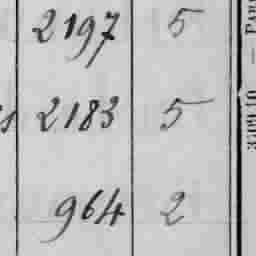 2197 5
2183 5
964 2